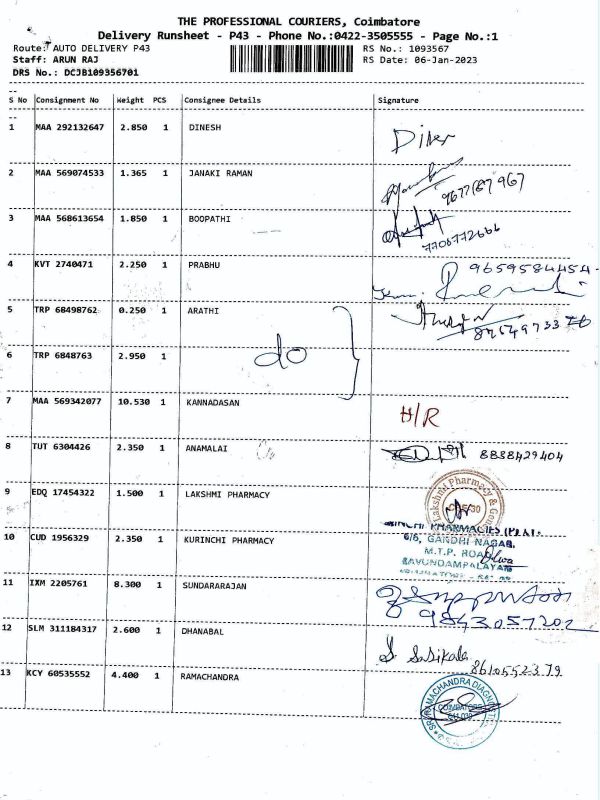 THE PROFESSIONAL COURIERS, Coimbatore
Delivery Runsheet - P43 - Phone No.:0422-3505555 - Page No.:1
Route: AUTO DELIVERY P43
RS No.: 1093567
Staff: ARUN RAJ
RS Date: 06-Jan-2023
DRS No.: DCJB109356701
S No Consignment No Weight PCS Consignee Details Signature
1 MAA 292132647 2.850 1 DINESH
2 MAA 569074533 1.365 1 JANAKI RAMAN
3 MAA 568613654 1.850 1 BOOPATHI
7706772666
4 KVT 2740471 2.250 1 PRABHU 9659584454
5 TRP 68498762 0.250 1 ARATHI
6 TRP 6848763 2.950 1 do
7 MAA 569342077 10.530 1 KANNADASAN H/R
8 TUT 6304426 2.350 1 ANAMALAI 8838429404
9 EDQ 17454322 1.500 1 LAKSHMI PHARMACY
Lakshmi Pharmacy &
10 CUD 1956329 2.350 1 KURINCHI PHARMACY
6/6, GANDHI NAGAR,
M.T.P. ROAD
KAVUNDAMPALAYAM
11 IXM 2205761 8.300 1 SUNDARARAJAN
9843057202
12 SLM 311184317 2.600 1 DHANABAL S. Sasikala
8610552379
13 KCY 60535552 4.400 1 RAMACHANDRA
SRI RAMACHANDRA DIAGNOSTIC
COIMBATORE